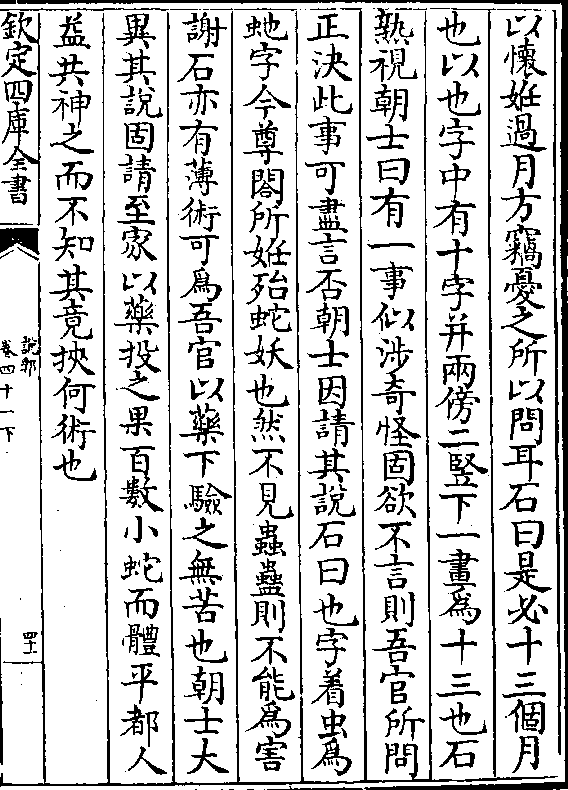 以懷姙過月方竊憂之所以問耳石曰是必十三個月
也以也字中有十字并兩傍二竪下一畫爲十三也石
熟視朝士曰有一事似涉奇怪固欲不言則吾官所問
正決此事可盡言否朝士因請其說石曰也字着虫爲
虵字今尊閤所姙殆蛇妖也然不見蟲蠱則不能爲害
謝石亦有薄術可爲吾官以藥下驗之無苦也朝士大
異其說固請至家以藥投之果百數小蛇而體平都人
益共神之而不知其竟挾何術也
欽定四庫全書
說郛
卷四十一下